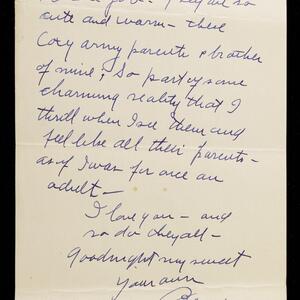 so
cute and warm - these
Cozy army parents & brother
of mine; So part of some
charming reality that I
thrill when I see them and
feel like all their parents -
as if I was for once an
adult -
I love you - and
so do they all -
Goodnight my sweet
Your own